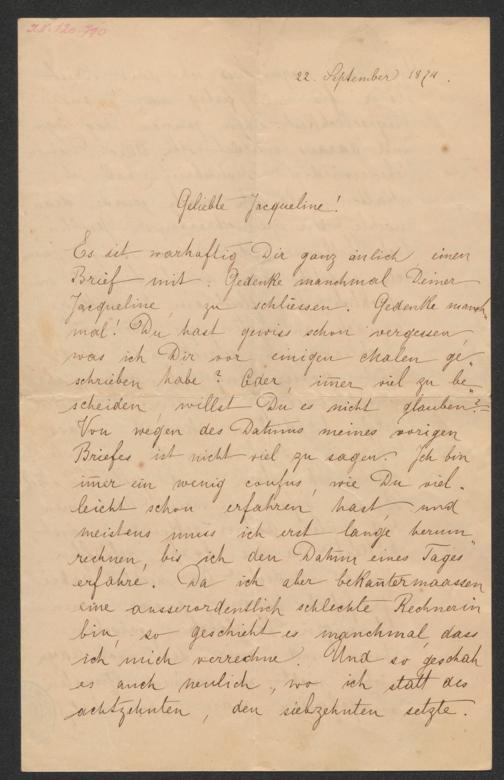 I.N. 120.790
22. September 1874.
Geliebte Jacqueline!
Es ist warhaftig Dir ganz änlich einen
Brief mit: Gedenke manchmal Deiner
Jacqueline, zu schliessen. Gedenke manch
mal! Du hast gewiss schon vergessen,
was ich Dir vor einigen Malen ge„
schrieben habe? Oder, im̄er viel zu be„
scheiden, willst Du es nicht glauben?=
Von wegen des Datums meines vorigen
Briefes ist nicht viel zu sagen. Ich bin
im̄er ein wenig confus, wie Du viel-
leicht schon erfahren hast, und
meistens muss ich erst lange herum„
rechnen, bis ich den Datum eines Tages
erfahre. Da ich aber bekan̄termaassen
eine ausserordentlich schlechte Rechnerin
bin, so geschieht es manchmal, dass
ich mich verrechne. Und so geschah
es auch neulich, wo ich statt des
achtzehnten, den siebzehnten setzte.